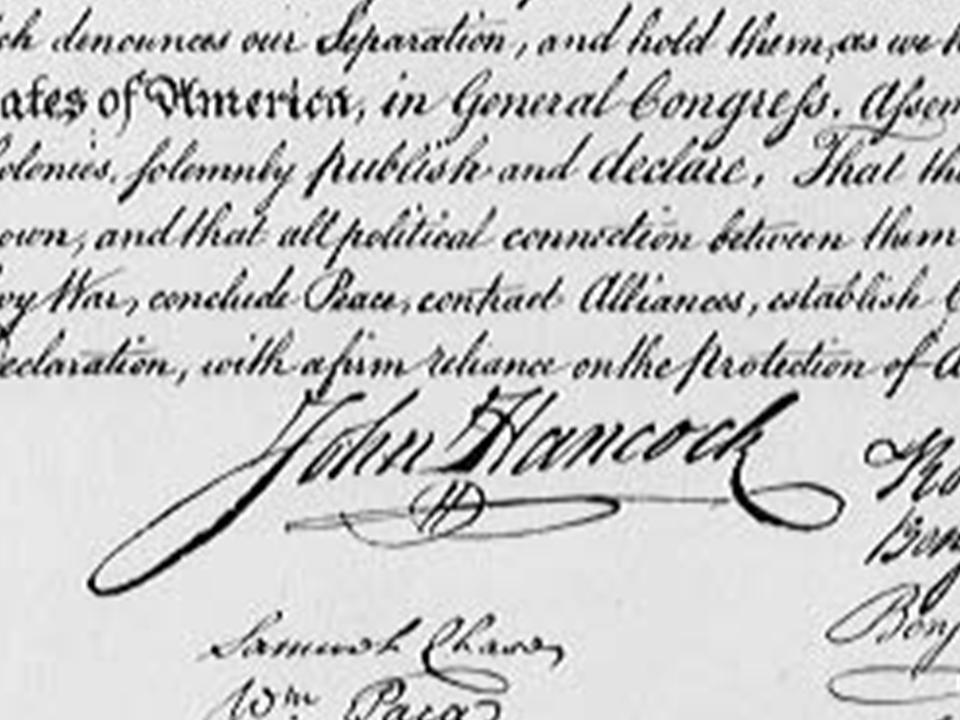 ch denounces our Separation, and hold them, as we h
ates of America, in General Congress, Assem
olonies, solemnly publish and declare, That the
own; and that all political connection between them
vy War, conclude Peace, contract Alliances, establish C
eclaration, with a firm reliance on the protection of
John Hancock
Samuel Chase
Wm Paca
Ro
Benj
Benj